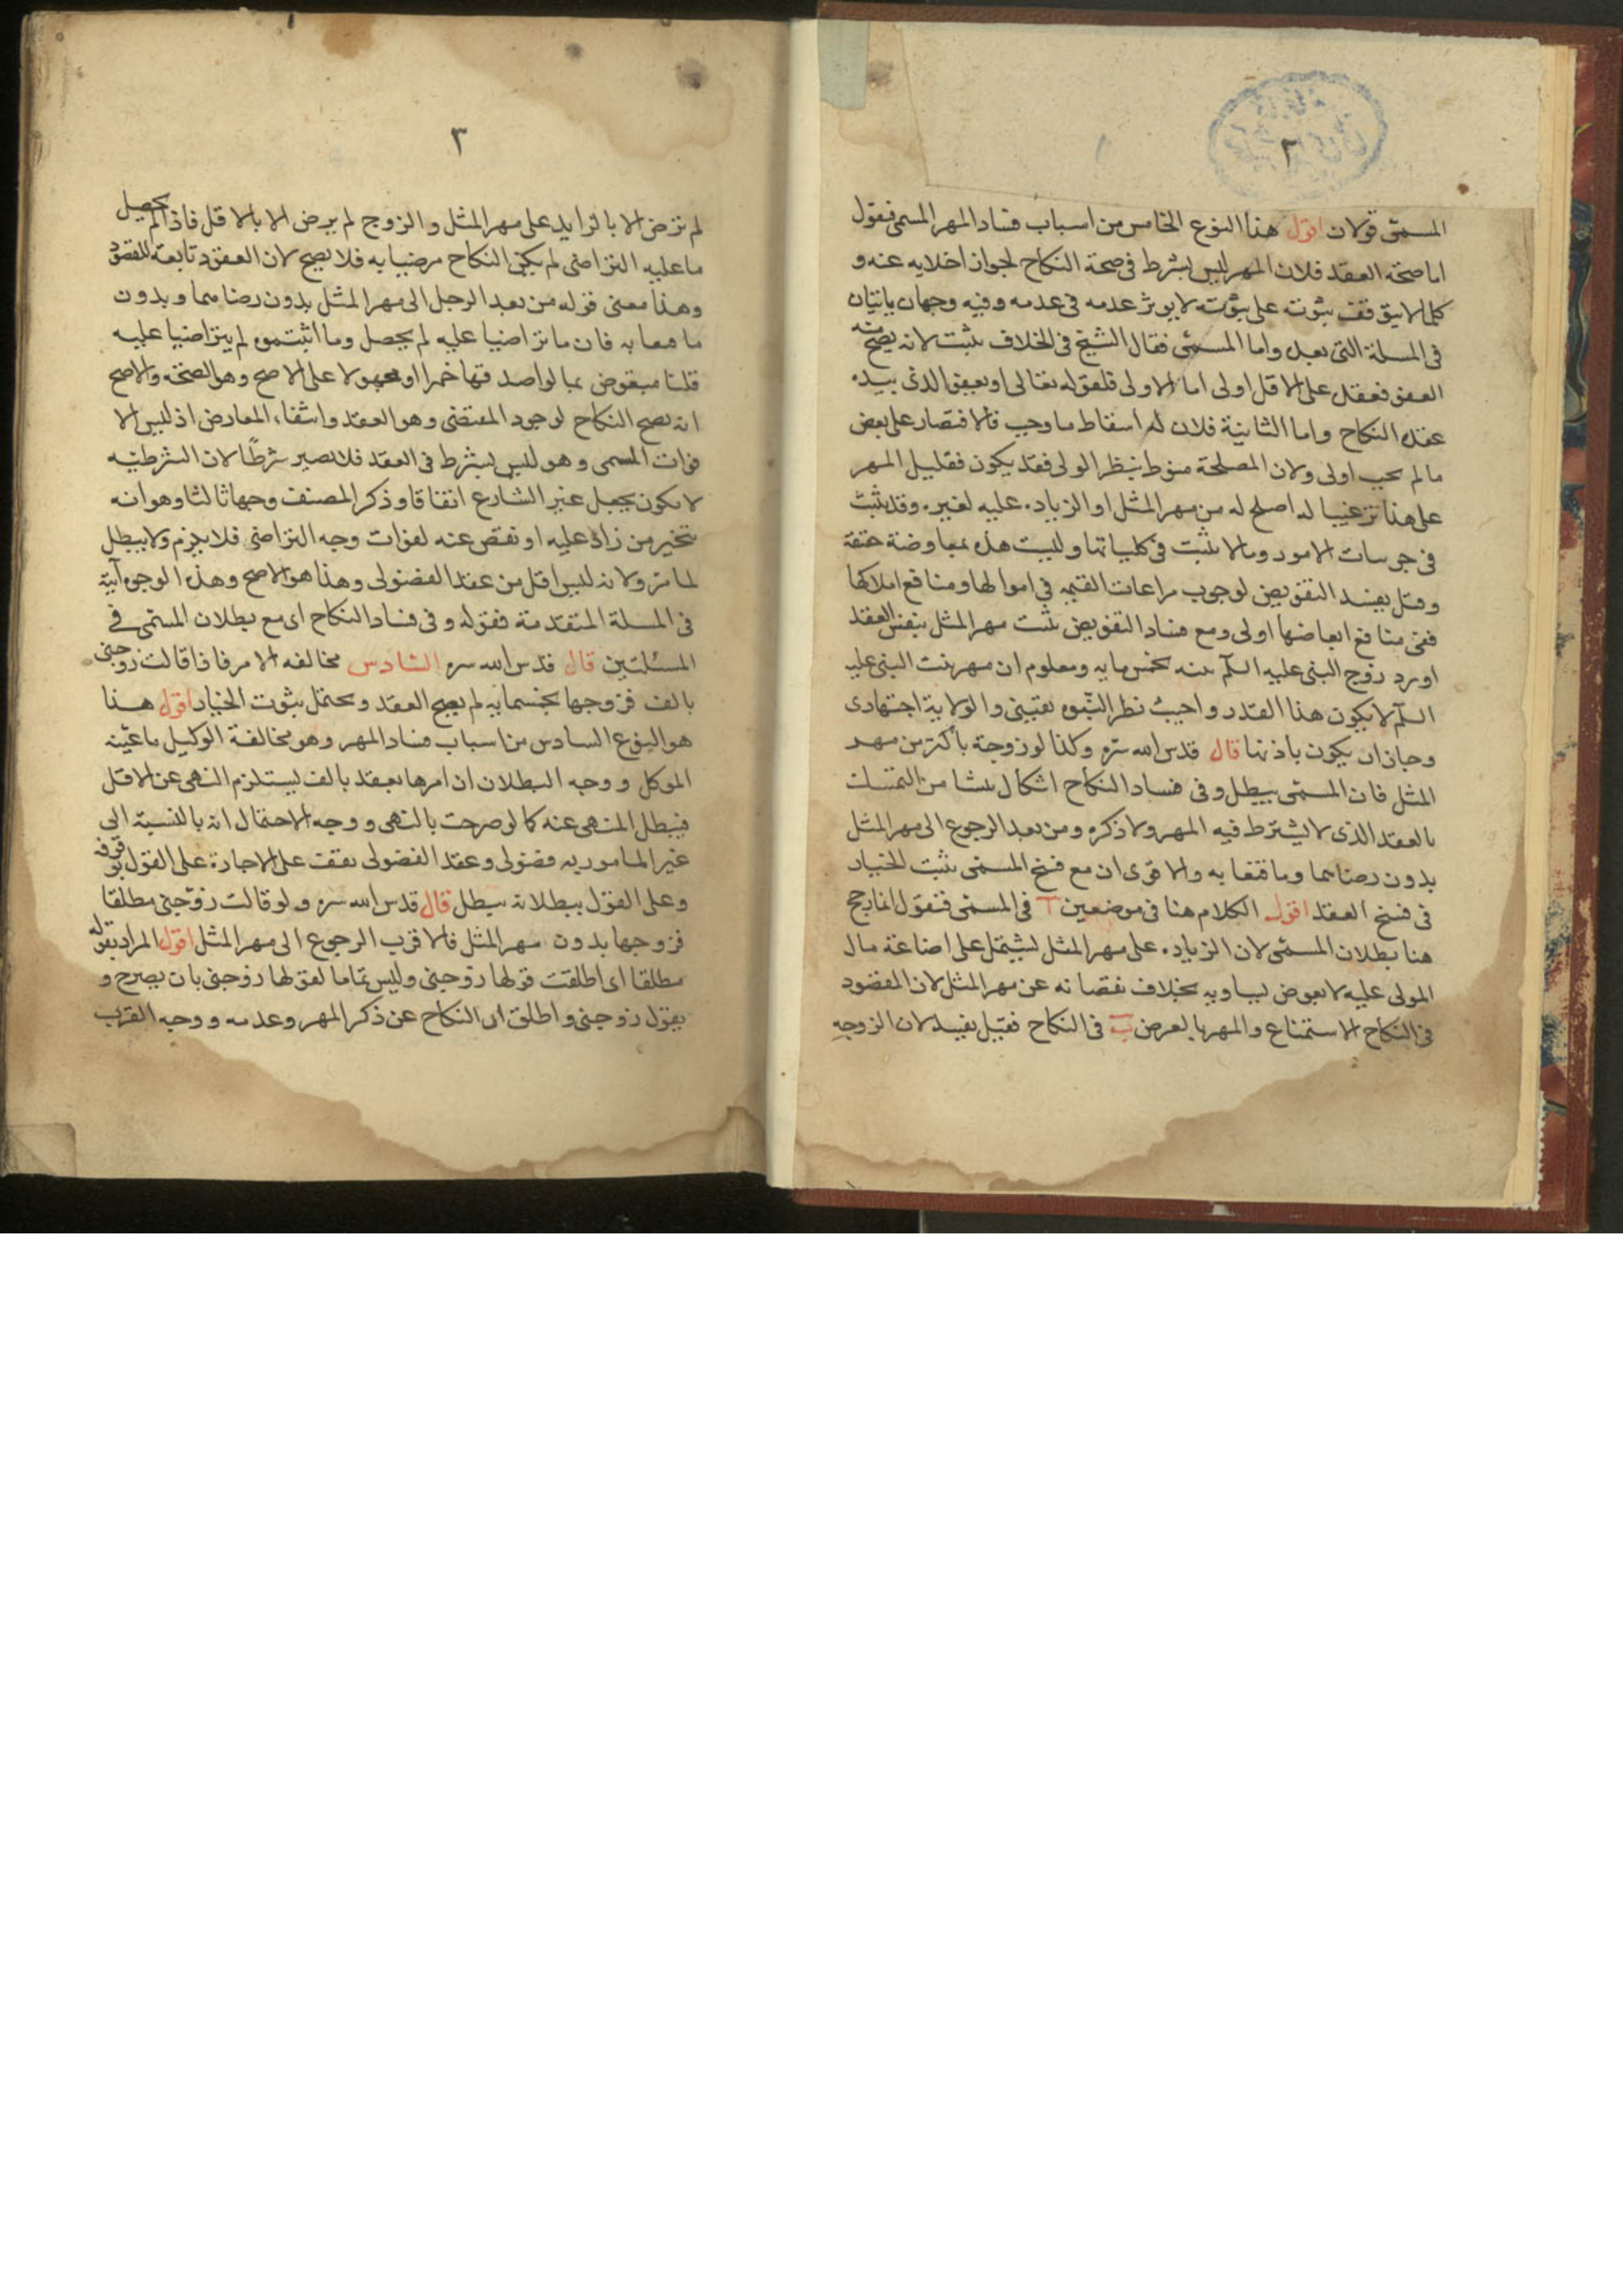 ٢
المسمى قولان اقول هذا النوع الخامس من اسباب فساد المهر المسمى فنقول
اما صحة العقد فلان المهر ليس بشرط فى صحة النكاح لجواز اخلايه عنه و
كلما لا يتوقف ثبوته على ثبوته لا يوثر عدمه فى عدمه وفيه وجهان ياتيان
فى المسلة التى بعد واما المسمى فقال الشيخ فى الخلاف يثبت لانه يصح منه
العفو فعقد على الاقل اولى اما الاولى فلقوله تعالى او يعفو الذى بيده
عقدة النكاح واما الثانية فلان له اسقاط ما وجب فالاقتصار على بعض
مالم يجب اولى ولان المصلحة منوط بنظر الولى فقد يكون فقليل المهر
على هذا ترغيبا له اصلح له من مهر المثل او الزياده عليه لغيره وقد يثبت
فى جرسات الامور ومالا يثبت فى كلياتها وليست هذه بمعاوضة حقة
وقيل يفسد التفويض لوجوب مراعات القيمه فى اموالها ومنافع املاكها
ففى منافع ابعاضها اولى ومع فساد التفويض يثبت مهر المثل بنفس العقد
اورد زوج النبى عليه السلم بنته بخمسمايه ومعلوم ان مهر بنت النبى عليه
السلم لا يكون هذا القدر واجيب نظر النبوه يقينى والولاية اجتهادى
وجازان يكون باذنها قال قدس الله سره وكذا لو زوجة باكثر من مهر
المثل فان المسمى يبطل وفى فساد النكاح اشكال ينشا من التمسك
بالعقد الذى لا يشترط فيه المهر ولا ذكره ومن بعد الرجوع الى مهر المثل
بدون رضاهما وما قنعا به والاقوى ان مع فسخ المسمى يثبت الخيار
فى فسخ العقد اقول الكلام هنا فى موضعين آ فى المسمى فنقول الارجح
هنا بطلان المسمى لان الزياده على مهر المثل يشتمل على اضاعة مال
المولى عليه لا بعوض يساويه بخلاف نقصانه عن مهر المثل لان المقصود
فى النكاح الاستمتاع والمهر بالعرض ب فى النكاح فقيل يفسد لان الزوجه
٣
لم ترض الا بالزايد على مهر المثل والزوج لم يرض الا بالاقل فاذا لم يحصل
ما عليه التراضى لم يكن النكاح مرضيا به فلا يصح لان العقود تابعة للقصود
وهذا معنى قوله من بعد الرجل الى مهر المثل بدون رضاهما وبدون
ما قنعا به فان ما تراضيا عليه لم يحصل وما اثبتموه لم يتراضيا عليه
قلنا منقوض بما لو اصدقها خمرا او مجهولا على الاصح وهو الصحة والاصح
انه يصح النكاح لوجود المقتضى وهو العقد وانتفاء المعارض اذ ليس الا
فوات المسمى وهو ليس بشرط فى العقد فلا يصير شرطا لان الشرطيه
لا يكون بجعل غير الشارع اتفاقا وذكر المصنف وجها ثالثا وهو انه
يتخير من زاد عليه او نقص عنه لفوات وجه التراضى فلا يلزم ولا يبطل
لما مر ولانه ليس اقل من عقد الفضولى وهذا هو الاصح وهذه الوجوه آتية
فى المسلة المتقدمة فقوله وفى فساد النكاح اى مع بطلان المسمى فى
المسئلتين قال قدس الله سره السادس مخالفه الامر فاذا قالت زوجنى
بالف فزوجها بخمسمايه لم يصح العقد ويحتمل ثبوت الخيار اقول هذا
هو النوع السادس من اسباب فساد المهر وهو مخالفة الوكيل ما عينه
الموكل ووجه البطلان ان امرها بعقد بالف يستلزم النهى عن الاقل
فيبطل المنهى عنه كما لو صرحت بالنهى ووجه الاحتمال انه بالنسبة الى
غير المامور به فضولى وعقد الفضولى يقف على الاجازة على القول بوقوفه
وعلى القول ببطلانه يبطل قال قدس الله سره ولو قالت زوجنى مطلقا
فزوجها بدون مهر المثل فالاقرب الرجوع الى مهر المثل اقول المراد بقوله
مطلقا اى اطلقت قولها زوجنى وليس تماما لقولها زوجنى بان يصرح و
يقول زوجنى واطلق اى النكاح عن ذكر المهر وعدمه ووجه القرب